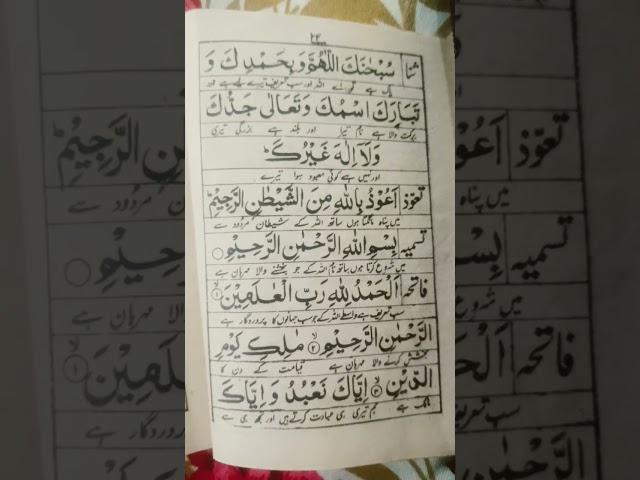 ۲۲
ثنا سُبْحٰنَكَ اللّٰهُمَّ وَ بِحَمْدِكَ وَ
پاک ہے تو اے اللہ اور سب تعریف تیرے لیے ہے اور
تَبَارَكَ اسْمُكَ وَتَعَالٰى جَدُّكَ
برکت والا ہے نام تیرا اور بلند ہے بزرگی تیری
وَلَآ اِلٰهَ غَيْرُكَ
اور نہیں ہے کوئی معبود سوا تیرے
تعوّذ اَعُوْذُ بِاللهِ مِنَ الشَّيْطٰنِ الرَّجِيْمِ
میں پناہ مانگتا ہوں ساتھ اللہ کے شیطان مردود سے
تسمیه بِسْمِ اللهِ الرَّحْمٰنِ الرَّحِيْمِ
میں شروع کرتا ہوں ساتھ نام اللہ کے جو بخشنے والا مہربان ہے
فاتحه اَلْحَمْدُ لِلّٰهِ رَبِّ الْعٰلَمِيْنَ ۱
سب تعریف ہے واسطے اللہ کے جو سب جہانوں کا پروردگار ہے
الرَّحْمٰنِ الرَّحِيْمِ ۲ مٰلِكِ يَوْمِ
بخشش کرنے والا مہربان ہے قیامت کے دن کا
الدِّيْنِ ۳ اِيَّاكَ نَعْبُدُ وَ اِيَّاكَ
مالک ہے ہم تیری ہی عبادت کرتے ہیں اور تجھ ہی سے